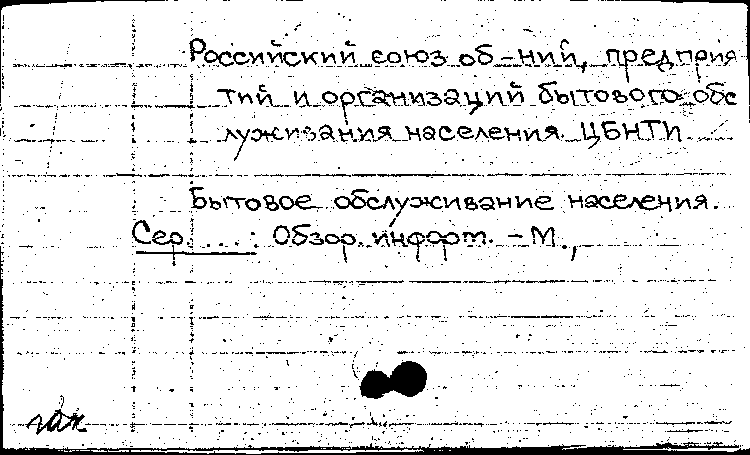 Российский союз об-ний, предприя
тий и организаций бытового обс
луживания населения. ЦБНТИ.
Бытовое обслуживание населения.
Сер. ...: Обзор. информ. - М.,